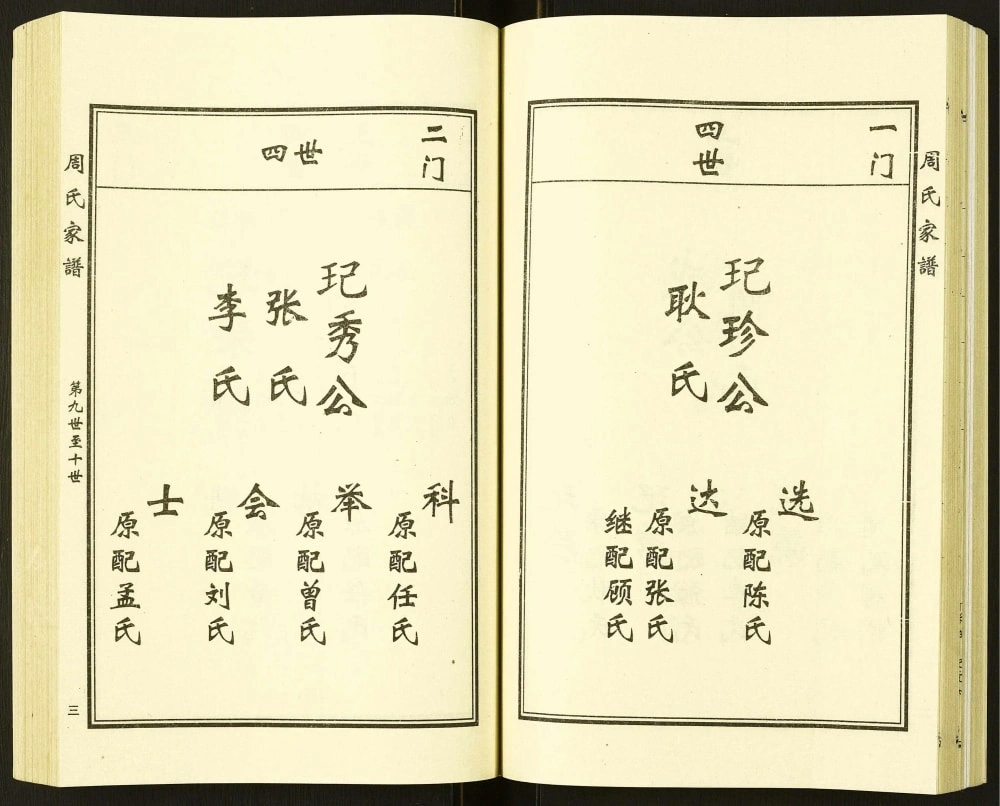 周氏家譜
一门
四世
玘珍公
耿氏
选
原配陈氏
达
原配张氏
继配顾氏
二门
四世
玘秀公
张氏
李氏
科
原配任氏
举
原配曾氏
会
原配刘氏
士
原配孟氏
周氏家譜
第九世至十世
三